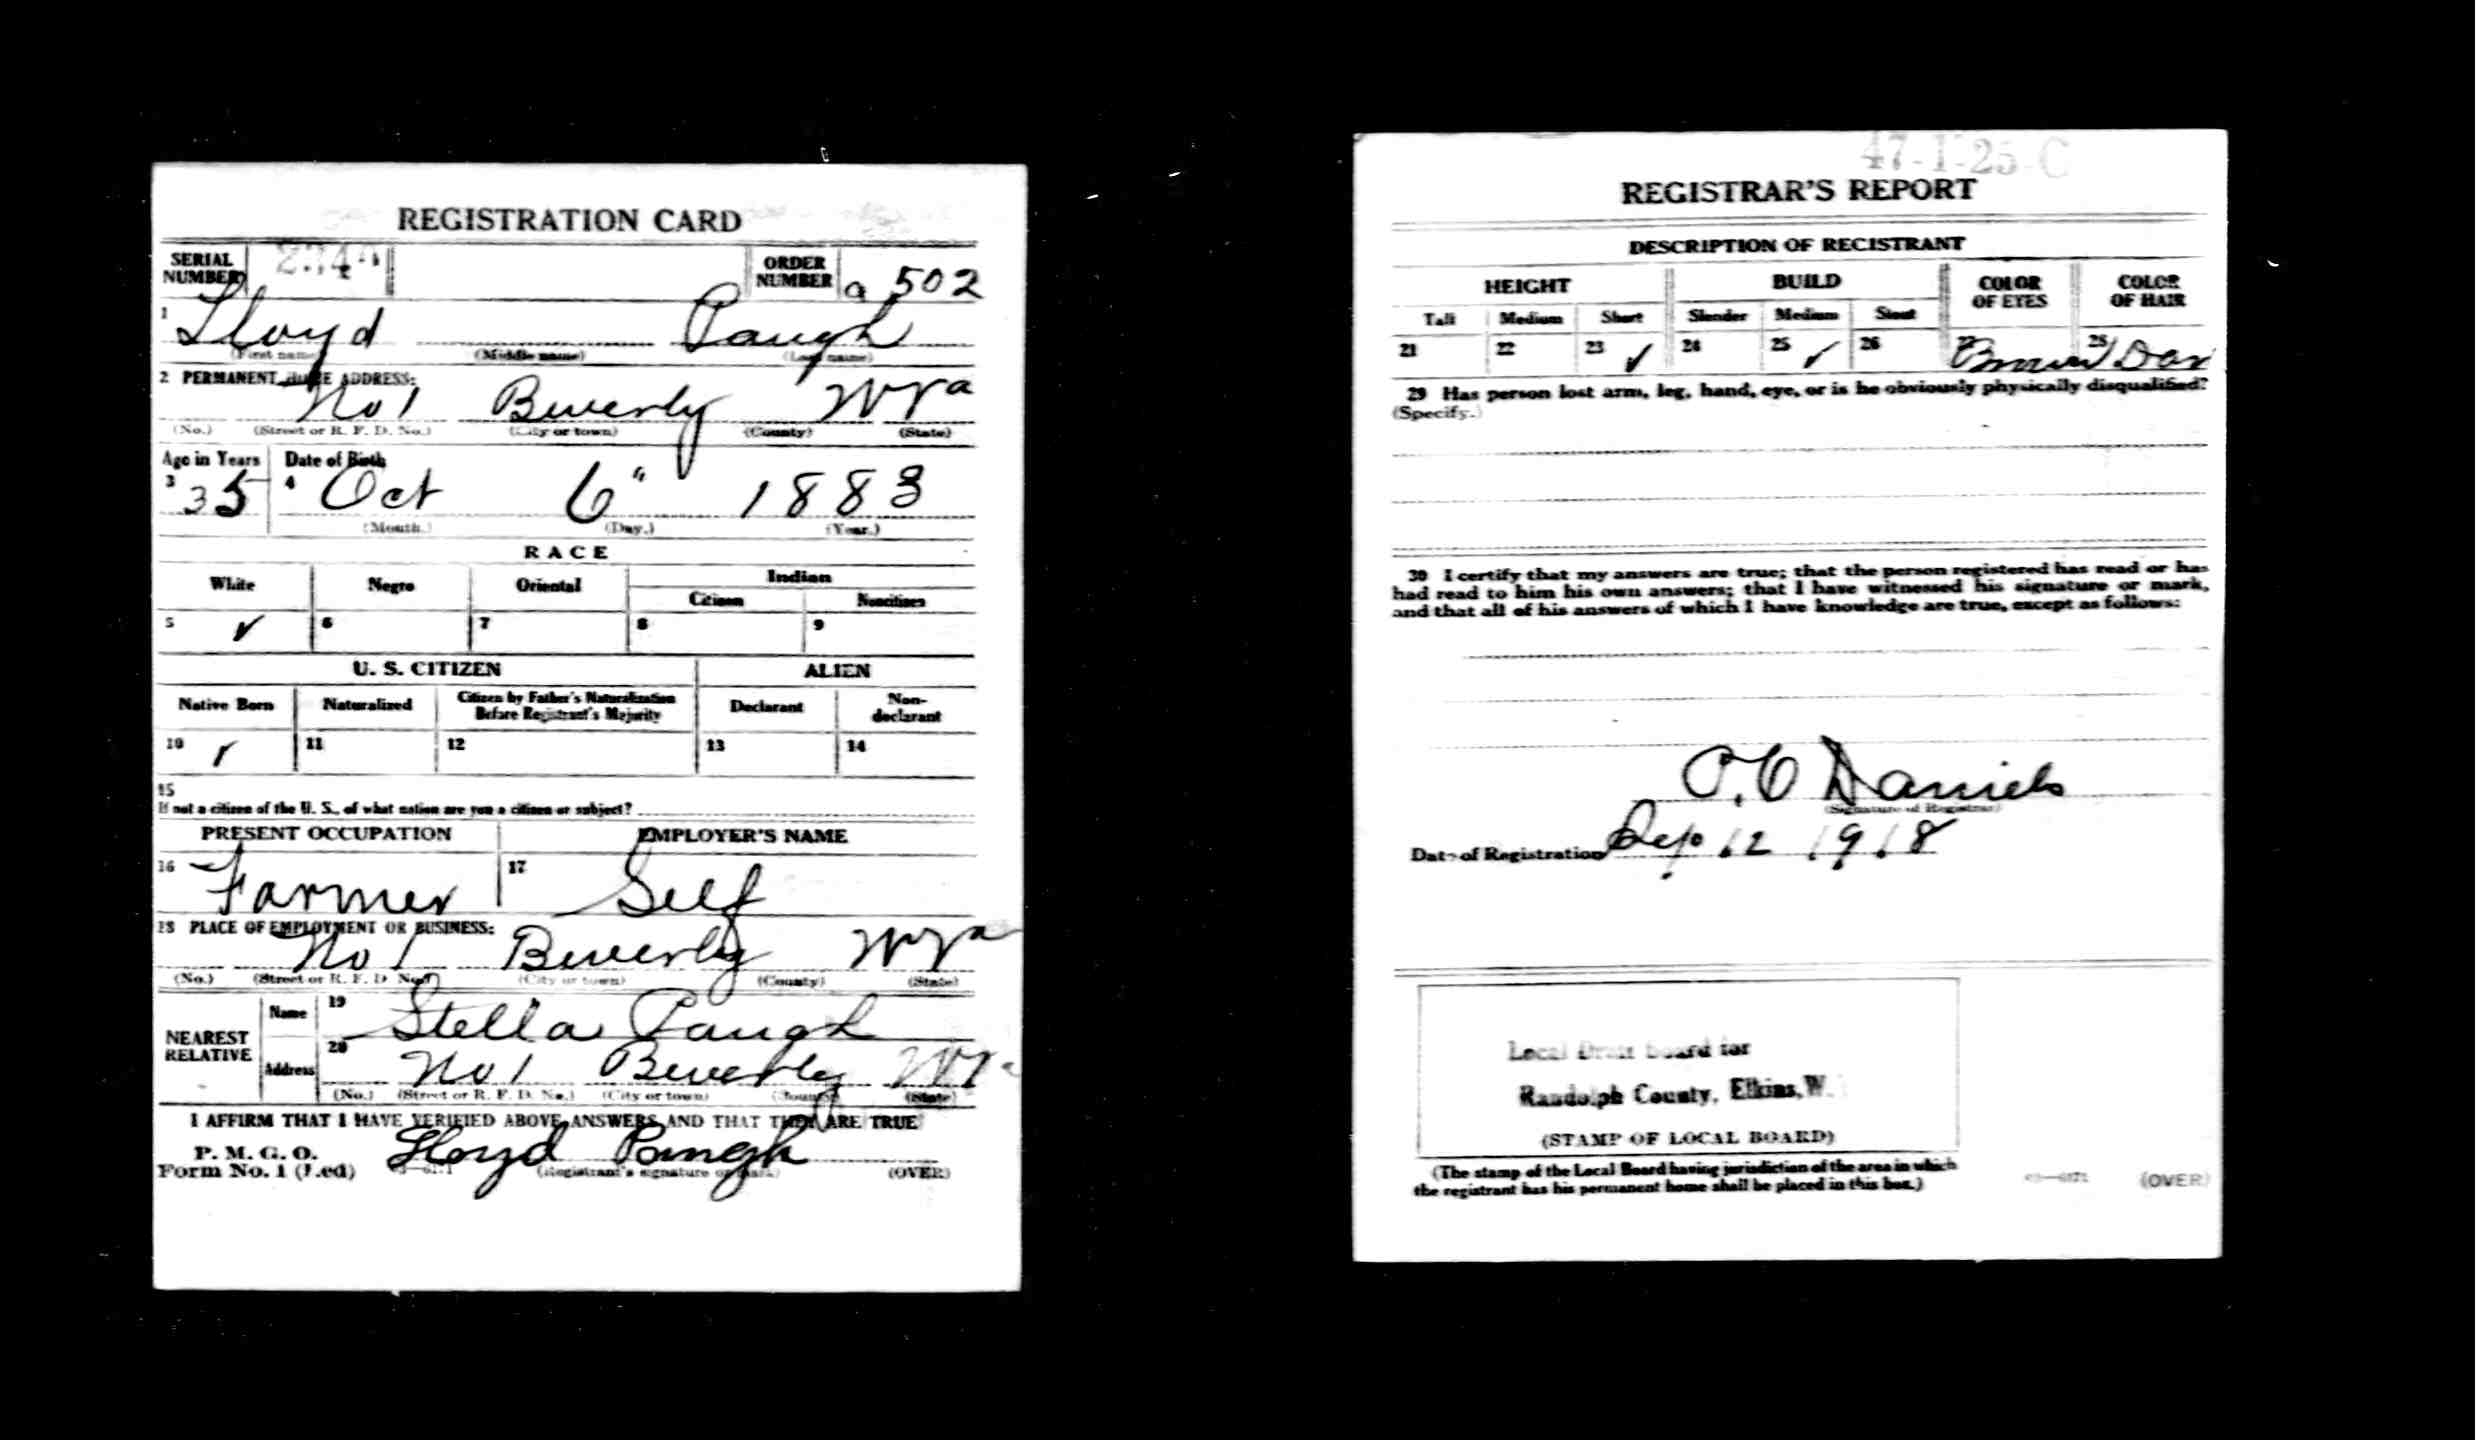 REGISTRATION CARD
SERIAL NUMBER
ORDER NUMBER a 502
1 Lloyd Paugh
(First name) (Middle name) (Last name)
2 PERMANENT HOME ADDRESS:
No 1 Beverly W Va
(No.) (Street or R. F. D. No.) (City or town) (County) (State)
Age in Years Date of Birth
3 35 4 Oct 6" 1883
(Month.) (Day.) (Year.)
RACE
White Negro Oriental Indian
Citizen Noncitizen
5 ✓ 6 7 8 9
U. S. CITIZEN ALIEN
Native Born Naturalized Citizen by Father's Naturalization Before Registrant's Majority Declarant Non-declarant
10 ✓ 11 12 13 14
15
If not a citizen of the U. S., of what nation are you a citizen or subject?
PRESENT OCCUPATION EMPLOYER'S NAME
16 Farmer 17 Self
18 PLACE OF EMPLOYMENT OR BUSINESS:
No 1 Beverly W Va
(No.) (Street or R. F. D. No.) (City or town) (County) (State)
NEAREST RELATIVE
Name 19 Stella Paugh
Address 20 No 1 Beverly W Va
(No.) (Street or R. F. D. No.) (City or town) (County) (State)
I AFFIRM THAT I HAVE VERIFIED ABOVE ANSWERS AND THAT THEY ARE TRUE
P. M. G. O.
Form No. 1 (Red) Lloyd Paugh
(Registrant's signature or mark) (OVER)
47-1-25-C
REGISTRAR'S REPORT
DESCRIPTION OF REGISTRANT
HEIGHT BUILD COLOR OF EYES COLOR OF HAIR
Tall Medium Short Slender Medium Stout
21 22 23 ✓ 24 25 ✓ 26 27 Brown 28
29 Has person lost arm, leg, hand, eye, or is he obviously physically disqualified?
(Specify.)
30 I certify that my answers are true; that the person registered has read or has
had read to him his own answers; that I have witnessed his signature or mark,
and that all of his answers of which I have knowledge are true, except as follows:
Daniels
(Signature of Registrar)
Date of Registration Sep 12 1918
Local Draft Board for
Randolph County, Elkins, W.
(STAMP OF LOCAL BOARD)
(The stamp of the Local Board having jurisdiction of the area in which
the registrant has his permanent home shall be placed in this box.)
(OVER)